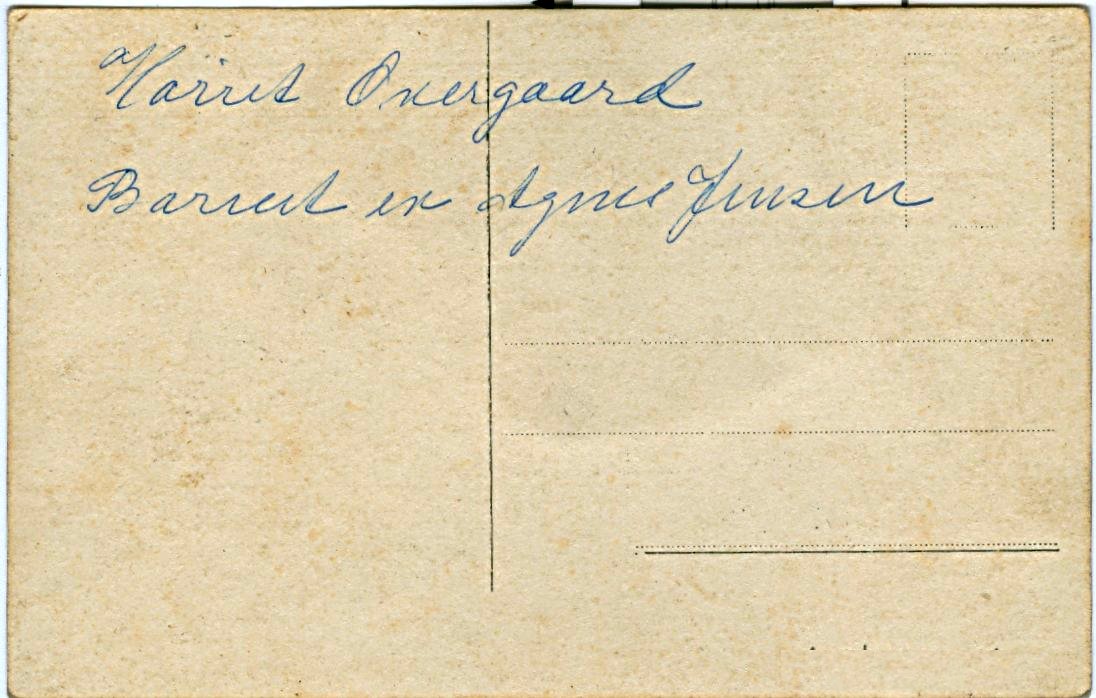 Harriet Overgaard
Barnet er Agnes Jensen